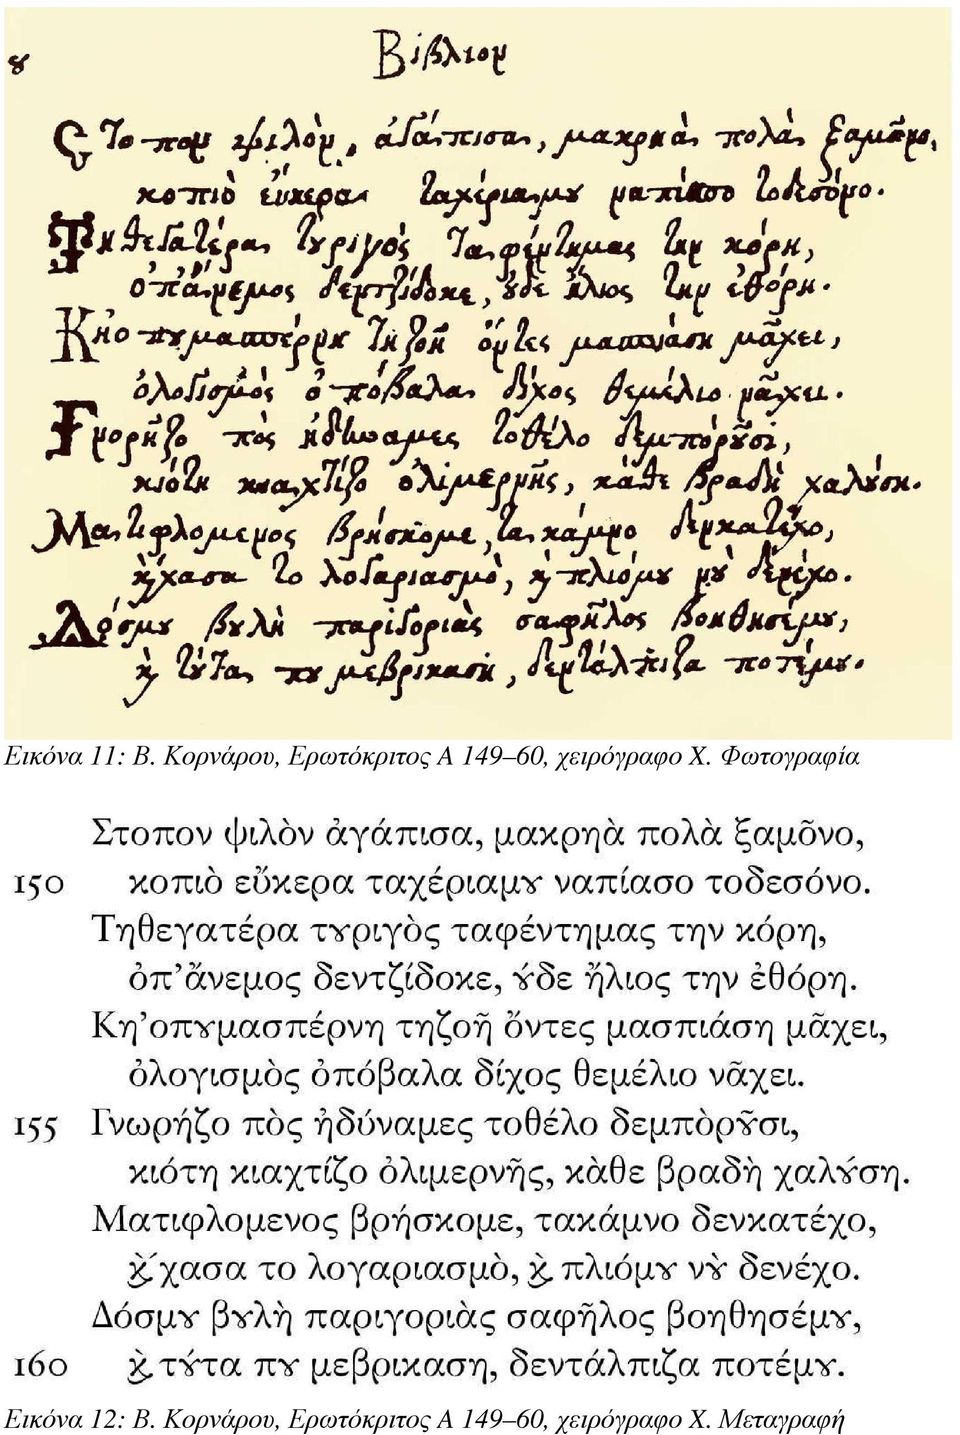 Βίβλιον
Στοπον ψιλὸν, ἀγάπισα, μακρηὰ πολὰ ξαμõνο,
κοπιὸ εὔκερα ταχέριαμȣ ναπίασο τοδεσόνο.
Τηθεγατέρα τȣριγὸς ταφέντημας την κόρη,
ὁπ'ἄνεμος δεντζίδοκε, ȣ́δε ἥλιος την ἐθόρη.
Κη'οπȣμασπέρνη τηζοῆ ὄντες μασπιάση μᾶχει,
ὀλογισμὸς ὁπόβαλα δίχος θεμέλιο νᾶχει.
Γνορήζο πὸς ἠδύναμες τοθέλο δεμπὸρȣ͂σι,
κιότη κιαχτίζο ὀλιμερνῆς, κὰθε βραδὴ χαλȣ́ση.
Ματιφλομενος βρήσκομε, τακάμνο δενκατέχο,
ϗ́χασα το λογαριασμὸ, ϗ πλιόμȣ νȣ̀ δενέχο.
Δόσμȣ βȣλὴ παριγοριὰς σαφῆλος βοηθησέμȣ,
ϗ τȣ́τα πȣ μεβρικαση, δεντάλπιζα ποτέμȣ.
Εικόνα 11: Β. Κορνάρου, Ερωτόκριτος Α 149–60, χειρόγραφο Χ. Φωτογραφία
Στοπον ψιλὸν ἀγάπισα, μακρηὰ πολὰ ξαμõνο,
150 κοπιὸ εὔκερα ταχέριαμȣ ναπίασο τοδεσόνο.
Τηθεγατέρα τȣριγὸς ταφέντημας την κόρη,
ὁπ'ἄνεμος δεντζίδοκε, ȣ́δε ἥλιος την ἐθόρη.
Κη'οπȣμασπέρνη τηζοῆ ὄντες μασπιάση μᾶχει,
ὀλογισμὸς ὁπόβαλα δίχος θεμέλιο νᾶχει.
155 Γνωρήζο πὸς ἠδύναμες τοθέλο δεμπὸρȣ͂σι,
κιότη κιαχτίζο ὀλιμερνῆς, κὰθε βραδὴ χαλȣ́ση.
Ματιφλομενος βρήσκομε, τακάμνο δενκατέχο,
ϗ́χασα το λογαριασμὸ, ϗ πλιόμȣ νȣ̀ δενέχο.
Δόσμȣ βȣλὴ παριγοριὰς σαφῆλος βοηθησέμȣ,
160 ϗ̀ τȣ́τα πȣ μεβρικαση, δεντάλπιζα ποτέμȣ.
Εικόνα 12: Β. Κορνάρου, Ερωτόκριτος Α 149–60, χειρόγραφο Χ. Μεταγραφή